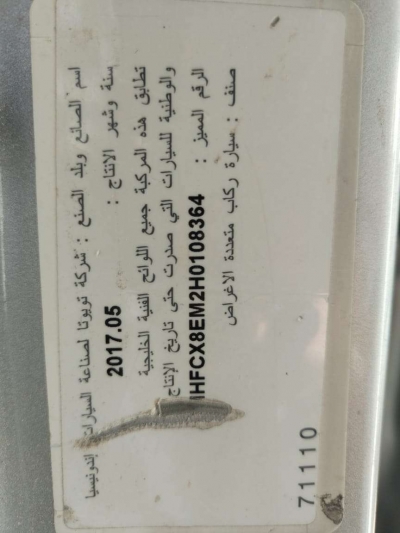 اسم الصانع وبلد الصنع : شركة تويوتا لصناعة السيارات إندونيسيا
سنة وشهر الانتاج : 2017.05
تطابق هذه المركبة جميع اللوائح الفنية الخليجية
والوطنية للسيارات التي صدرت حتى تاريخ الإنتاج
الرقم المميز : HFCX8EM2H0108364
صنف : سيارة ركاب متعددة الاغراض
71110